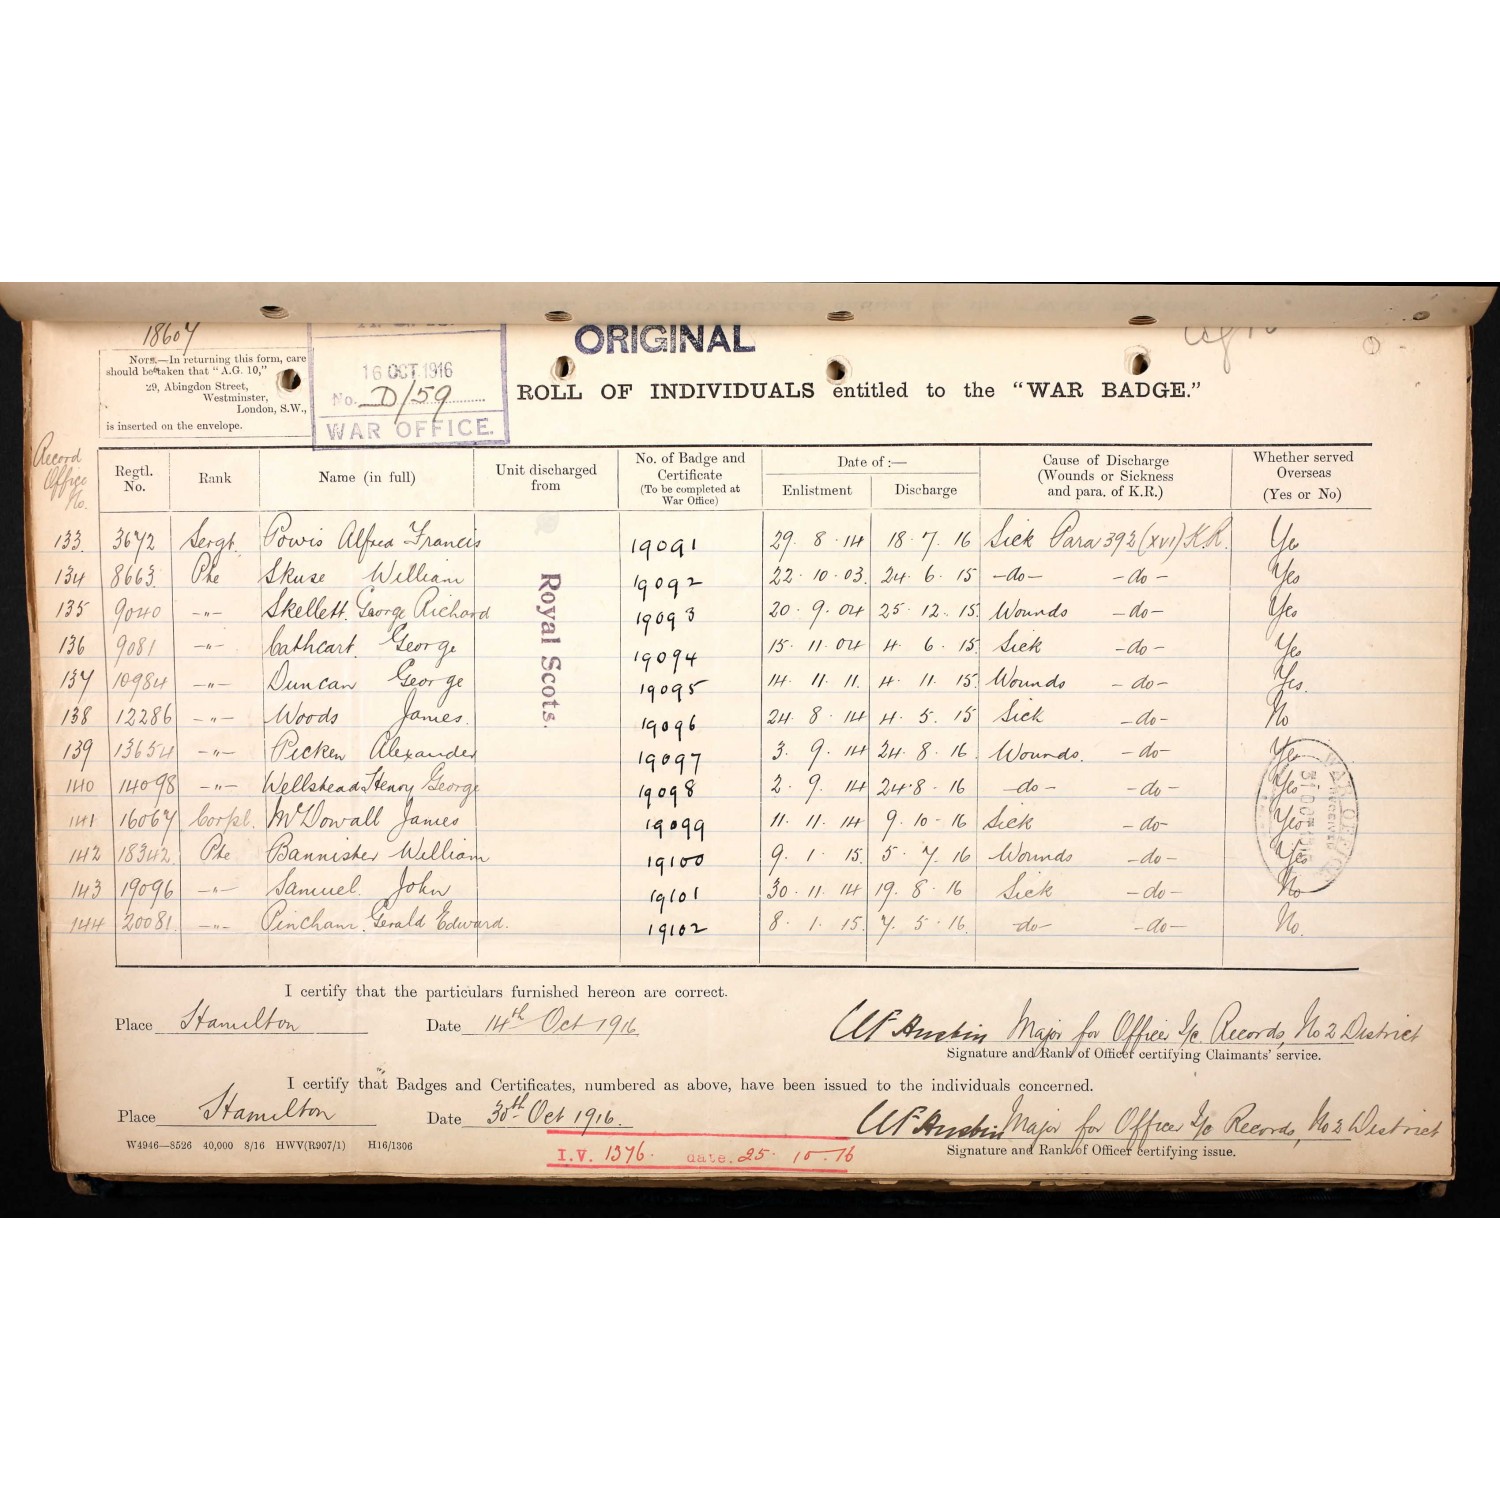 18607
NOTE.—In returning this form, care
should be taken that "A.G. 10,"
29, Abingdon Street,
Westminster,
London, S.W.,
is inserted on the envelope.
16 OCT 1916
No. D/59
WAR OFFICE.
ORIGINAL
ROLL OF INDIVIDUALS entitled to the "WAR BADGE."
Record Office No.
Regtl. No.
Rank
Name (in full)
Unit discharged from
No. of Badge and Certificate (To be completed at War Office)
Date of :—
Enlistment
Discharge
Cause of Discharge (Wounds or Sickness and para. of K.R.)
Whether served Overseas (Yes or No)
133. 3672 Sergt. Powis Alfred Francis 19091 29. 8. 14 18. 7. 16 Sick Para 392 (XVI) K.R. Yes
134 8663. Pte Skuse William 19092 22. 10. 03. 24. 6. 15 -do- -do- Yes
135 9040 -"- Skellett. George Richard 19093 20. 9. 04 25. 12. 15. Wounds -do- Yes
136 9081 -"- Cathcart. George 19094 15. 11. 04 4. 6. 15. Sick -do- Yes
137 10984 -"- Duncan George 19095 14. 11. 11. 4. 11. 15. Wounds -do- Yes.
138 12286 -"- Woods James. 19096 24. 8. 14 4. 5. 15 Sick -do- No
139 13654 -"- Picken Alexander 19097 3. 9. 14 24. 8. 16 Wounds. -do- Yes
140 14098 -"- Wellstead Henry George 19098 2. 9. 14 24. 8. 16 -do- -do- Yes
141 16067 Corpl. McDowall James 19099 11. 11. 14 9. 10. 16 Sick -do- Yes
142 18342 Pte Bannister William 19100 9. 1. 15. 5. 7. 16 Wounds -do- Yes
143 19096 -"- Samuel. John 19101 30. 11. 14 19. 8. 16 Sick -do- No
144 20081. -"- Pincham. Gerald Edward. 19102 8. 1. 15. 7. 5. 16. -do- -do- No.
Royal Scots.
I certify that the particulars furnished hereon are correct.
Place Hamilton Date 14th Oct 1916 Austin Major for Officer I/c. Records, No 2 District
Signature and Rank of Officer certifying Claimants' service.
I certify that Badges and Certificates, numbered as above, have been issued to the individuals concerned.
Place Hamilton Date 30th Oct 1916. Austin Major for Officer I/c Records, No 2 District
W4946—8526 40,000 8/16 HWV(R907/1) H16/1306
I.V. 1376. date. 25. 10. 16
Signature and Rank of Officer certifying issue.